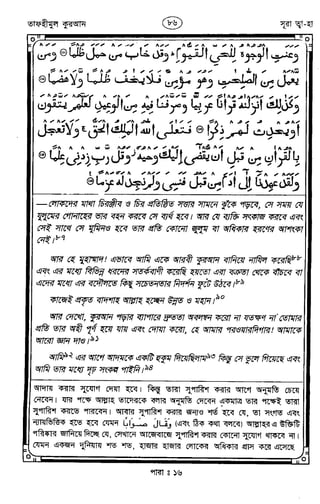 তাফহীমুল কুরআন
৮৬
সূরা ত্বা-হা
وَعَنَتِ الْوُجُوْهُ لِلْحَيِّ الْقَيُّوْمِ ؕ وَقَدْ خَابَ مَنْ حَمَلَ ظُلْمًا ۝ وَمَنْ
يَّعْمَلْ مِنَ الصّٰلِحٰتِ وَهُوَ مُؤْمِنٌ فَلَا يَخٰفُ ظُلْمًا وَّلَا هَضْمًا ۝
وَكَذٰلِكَ اَنْزَلْنٰهُ قُرْاٰنًا عَرَبِيًّا وَّصَرَّفْنَا فِيْهِ مِنَ الْوَعِيْدِ لَعَلَّهُمْ يَتَّقُوْنَ
اَوْ يُحْدِثُ لَهُمْ ذِكْرًا ۝ فَتَعٰلَى اللّٰهُ الْمَلِكُ الْحَقُّ ۚ وَلَا تَعْجَلْ
بِالْقُرْاٰنِ مِنْ قَبْلِ اَنْ يُّقْضٰٓى اِلَيْكَ وَحْيُهٗ ؗ وَقُلْ رَّبِّ زِدْنِيْ عِلْمًا ۝
وَلَقَدْ عَهِدْنَآ اِلٰٓى اٰدَمَ مِنْ قَبْلُ فَنَسِيَ وَلَمْ نَجِدْ لَهٗ عَزْمًا ۝
—লোকদের মাথা চিরঞ্জীব ও চির প্রতিষ্ঠিত সত্তার সামনে ঝুঁকে পড়বে, সে সময় যে
যুলুমের গোনাহের ভার বহন করবে সে ব্যর্থ হবে। আর যে ব্যক্তি সৎকাজ করবে এবং
সেই সাথে সে মুমিনও হবে তার প্রতি কোনো জুলুম বা অধিকার হরণের আশংকা
নেই।৮৭
আর হে মুহাম্মাদ! এভাবে আমি একে আরবী কুরআন বানিয়ে নাযিল করেছি৮৮
এবং এর মধ্যে বিভিন্ন ধরনের সতর্কবাণী করেছি হয়তো এরা বক্রতা থেকে বাঁচবে বা
এদের মধ্যে এর বদৌলতে কিছু সচেতনতার নিদর্শন ফুটে উঠবে।৮৯
কাজেই প্রকৃত বাদশাহ আল্লাহ হচ্ছেন উন্নত ও মহান।৯০
আর দেখো, কুরআন পড়ার ব্যাপারে দ্রুততা অবলম্বন করো না যতক্ষণ না তোমার
প্রতি তার অহী পূর্ণ হয়ে যায় এবং দোয়া করো, হে আমার পরওয়ারদিগার! আমাকে
আরো জ্ঞান দাও।৯১
আমি৯২ এর আগে আদমকে একটি হুকুম দিয়েছিলাম৯৩ কিন্তু সে ভুলে গিয়েছে এবং
আমি তার মধ্যে দৃঢ় সংকল্প পাইনি।৯৪
আদায় করার সুযোগ দেয়া হবে। কিন্তু তারা সুপারিশ করার আগে অনুমতি চেয়ে
নেবেন। যার পক্ষে আল্লাহ তাদেরকে বলার অনুমতি দেবেন একমাত্র তার পক্ষেই তারা
সুপারিশ করতে পারবেন। আবার সুপারিশ করার জন্যও শর্ত হবে যে, তা সংগত এবং
ন্যায়ভিত্তিক হতে হবে যেমন وَقَالَ صَوَابًا (এবং ঠিক কথা বলবে) আল্লাহর এ উক্তিটি
পরিষ্কার জানিয়ে দিচ্ছে যে, সেখানে আজেবাজে সুপারিশ করার কোনো সুযোগ থাকবে না।
যেমন একজন দুনিয়ায় শত শত, হাজার হাজার লোকের অধিকার গ্রাস করে এসেছে
পারা : ১৬